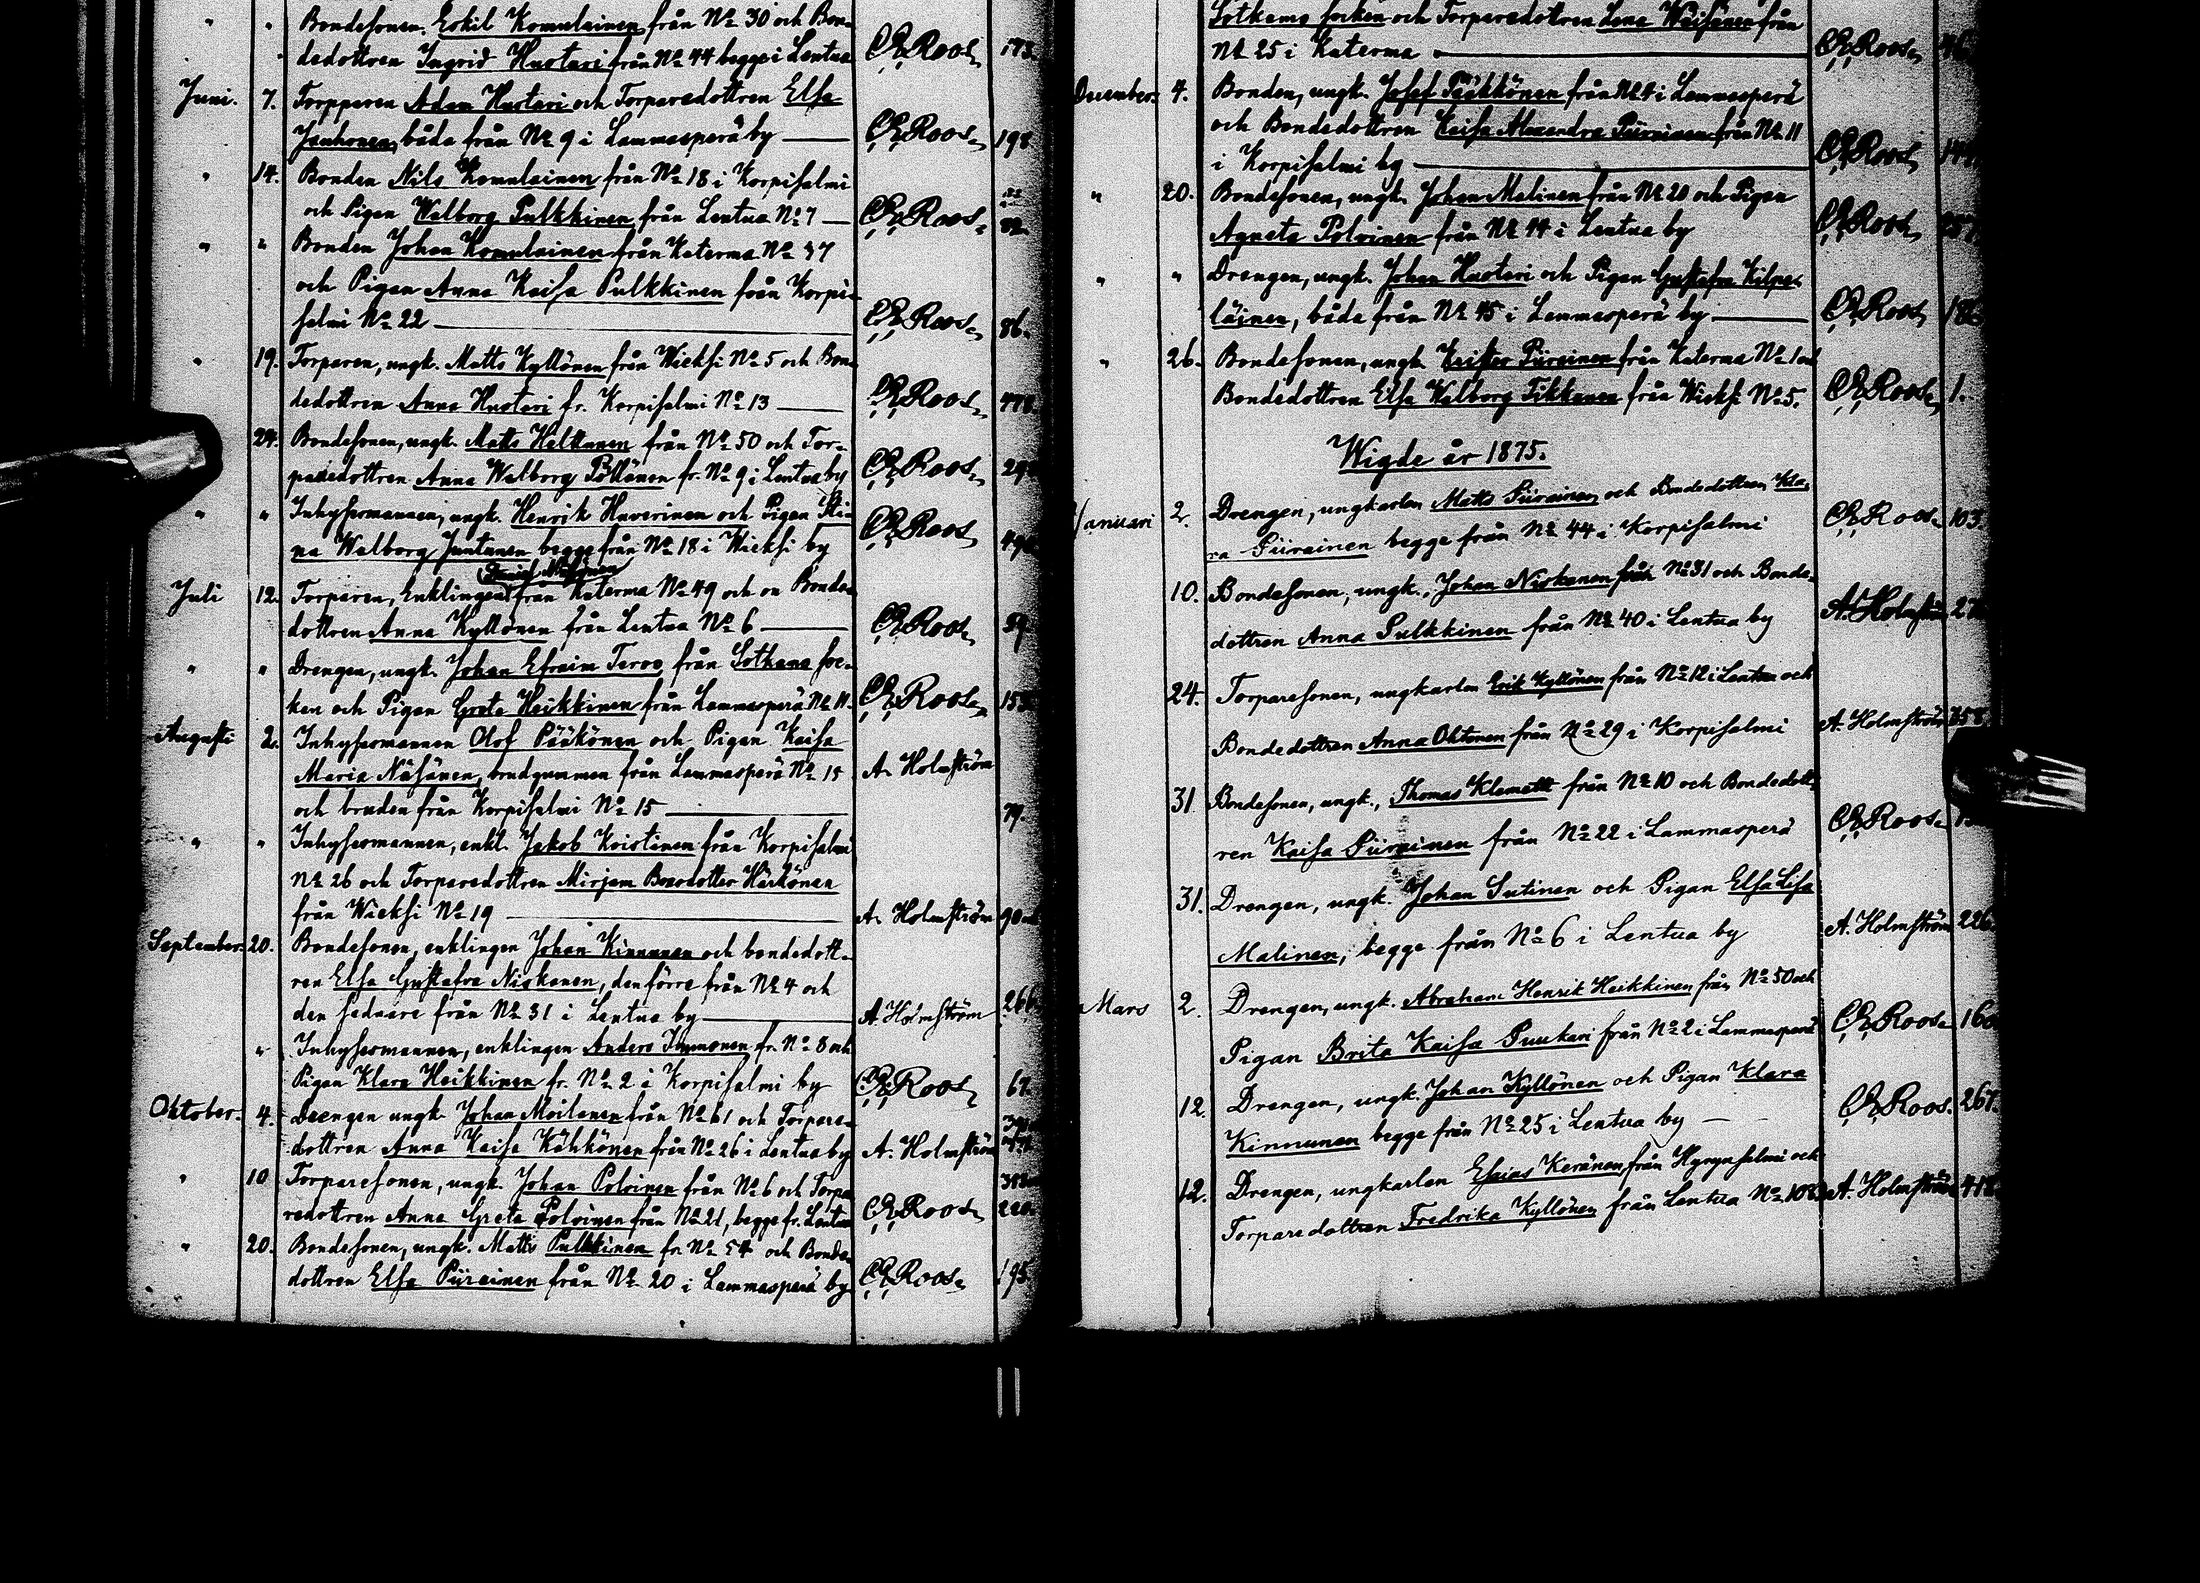 " " Bondesonen Eskil Komulainen från No 30 och Bon-
dedottren Ingrid Huotari från No 44 begge i Lentua C R Roos 173.
Juni. 7. Torpparen Adam Huotari och Torparedottren Elsa
Januhonen, båda från No 9 i Lammasperä by C R Roos 198
" 14. Bonden Nils Komulainen från No 18 i Korpisalmi
och Pigan Walborg Pulkkinen från Lentua No 7 C R Roos 82.
" " Bonden Johan Komulainen från Katerma No 37
och Pigan Anna Kaisa Pulkkinen från Korpi-
salmi No 22 C R Roos 86.
" 19. Torparen, ungk. Matts Kyllönen från Wieksi No 5 och Bon-
dedottren Anna Huotari fr. Korpisalmi No 13 C R Roos
" 24. Bondesonen, ungk. Matts Heltunen från No 50 och Tor-
paredottren Anna Walborg Pöllönen fr. No 9 i Lentua by C R Roos
" " Inhysesmannen, ungk. Henrik Huverinen och Pigan Sti-
na Walborg Juntunen begge från No 18 i Wieksi by C R Roos
Juli 12. Torparen, Enklingen från Katerma No 49 och en Bonde-
dottren Anna Kyllönen från Lentua No 6 C R Roos 59.
" " Drengen, ungk. Johan Efraim Tervo från Sotkamo soc-
ken och Pigan Greta Heikkinen från Lammasperä No 11. C R Roos 153.
Augusti 2. Inhysesmannen Olof Pääkönen och Pigan Kaisa
Maria Näsänen, brudgummen från Lammasperä No 15 A. Holmström
och bruden från Korpisalmi No 15 79.
" " Inhysesmannen, enkl. Jakob Kristinen från Korpisalmi
No 26 och Torparedottren Mirjam Beresdotter Härkönen
från Wieksi No 19 A. Holmström 90
September. 20. Bondesonen, enklingen Johan Kinnunen och bondedott-
ren Elsa Gustafva Niskanen, den förre från No 4 och
den sednare från No 31 i Lentua by A. Holmström 266.
" Inhysesmannen, enklingen Anders Immonen fr. No 8 och
Pigan Klara Heikkinen fr. No 2 i Korpisalmi by C R Roos 67.
Oktober. 4. Drengen ungk. Johan Moilanen från No 61 och Torpare-
dottren Anna Kaisa Kähkönen från No 26 i Lentua by A. Holmström
" 10 Torparesonen, ungk. Johan Polvinen från No 6 och Torpa-
redottren Anna Greta Polvinen från No 21, begge fr. Lentua C R Roos 220.
" 20. Bondesonen, ungk. Matts Pulkkinen fr. No 54 och Bonde-
dottren Elsa Piirainen från No 20 i Lammasperä by C R Roos 195.
Sotkamo socken och Torparedottren Lena Wäisänen från
No 25 i Katerma C R Roos
December. 4. Bonden, ungk. Josef Pääkkönen från No 4 i Lammasperä
och Bondedottren Kaisa Alexandra Piirainen från No 11
i Korpisalmi by C R Roos
" 20. Bondesonen, ungk. Johan Malinen från No 20 och Pigan
Agneta Polvinen från No 44 i Lentua by C R Roos
" " Drengen, ungk. Johan Huotari och Pigan Gustafva Kilpe-
läinen, båda från No 45 i Lammasperä by C R Roos
" 26. Bondesonen, ungk. Krister Piirainen från Katerma No 1 och
Bondedottren Elsa Walborg Tikkanen från Wieksi No 5. C R Roos 1.
Wigde år 1875.
Januari 2. Drengen, ungkarlen Matts Piirainen och Bondedottren Kla-
ra Piirainen begge från No 44 i Korpisalmi C R Roos 103.
10. Bondesonen, ungk., Johan Niskanen från No 31 och Bonde-
dottren Anna Pulkkinen från No 40 i Lentua by A. Holmström
24. Torparesonen, ungkarlen Erik Kyllönen från No 12 i Lentua och
Bondedottren Anna Ohtonen från No 29 i Korpisalmi A. Holmström 258.
31 Bondesonen, ungk., Thomas Klemetti från No 10 och Bondedott-
ren Kaisa Piirainen från No 22 i Lammasperä C R Roos
31. Drengen, ungk. Johan Sutinen och Pigan Elsa Lisa
Malinen, begge från No 6 i Lentua by A. Holmström 226.
Mars 2. Drengen, ungk. Abraham Henrik Heikkinen från No 50 och
Pigan Brita Kaisa Puukari från No 2 i Lammasperä C R Roos 160
12. Drengen, ungk. Johan Kyllönen och Pigan Klara
Kinnunen begge från No 25 i Lentua by C R Roos. 267.
12. Drengen, ungkarlen Esaias Keränen från Hyrynsalmi och
Torparedottren Fredrika Kyllönen från Lentua No 10 A. Holmström